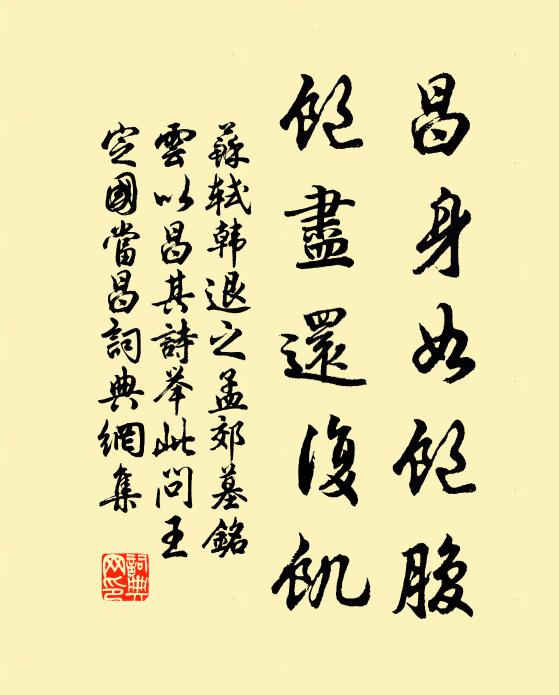 昌身如飽腹
飽盡還復飢
蘇軾韓退之孟郊墓銘
雲以昌其詩舉此問王
定國當昌詞典網集
詞典网印